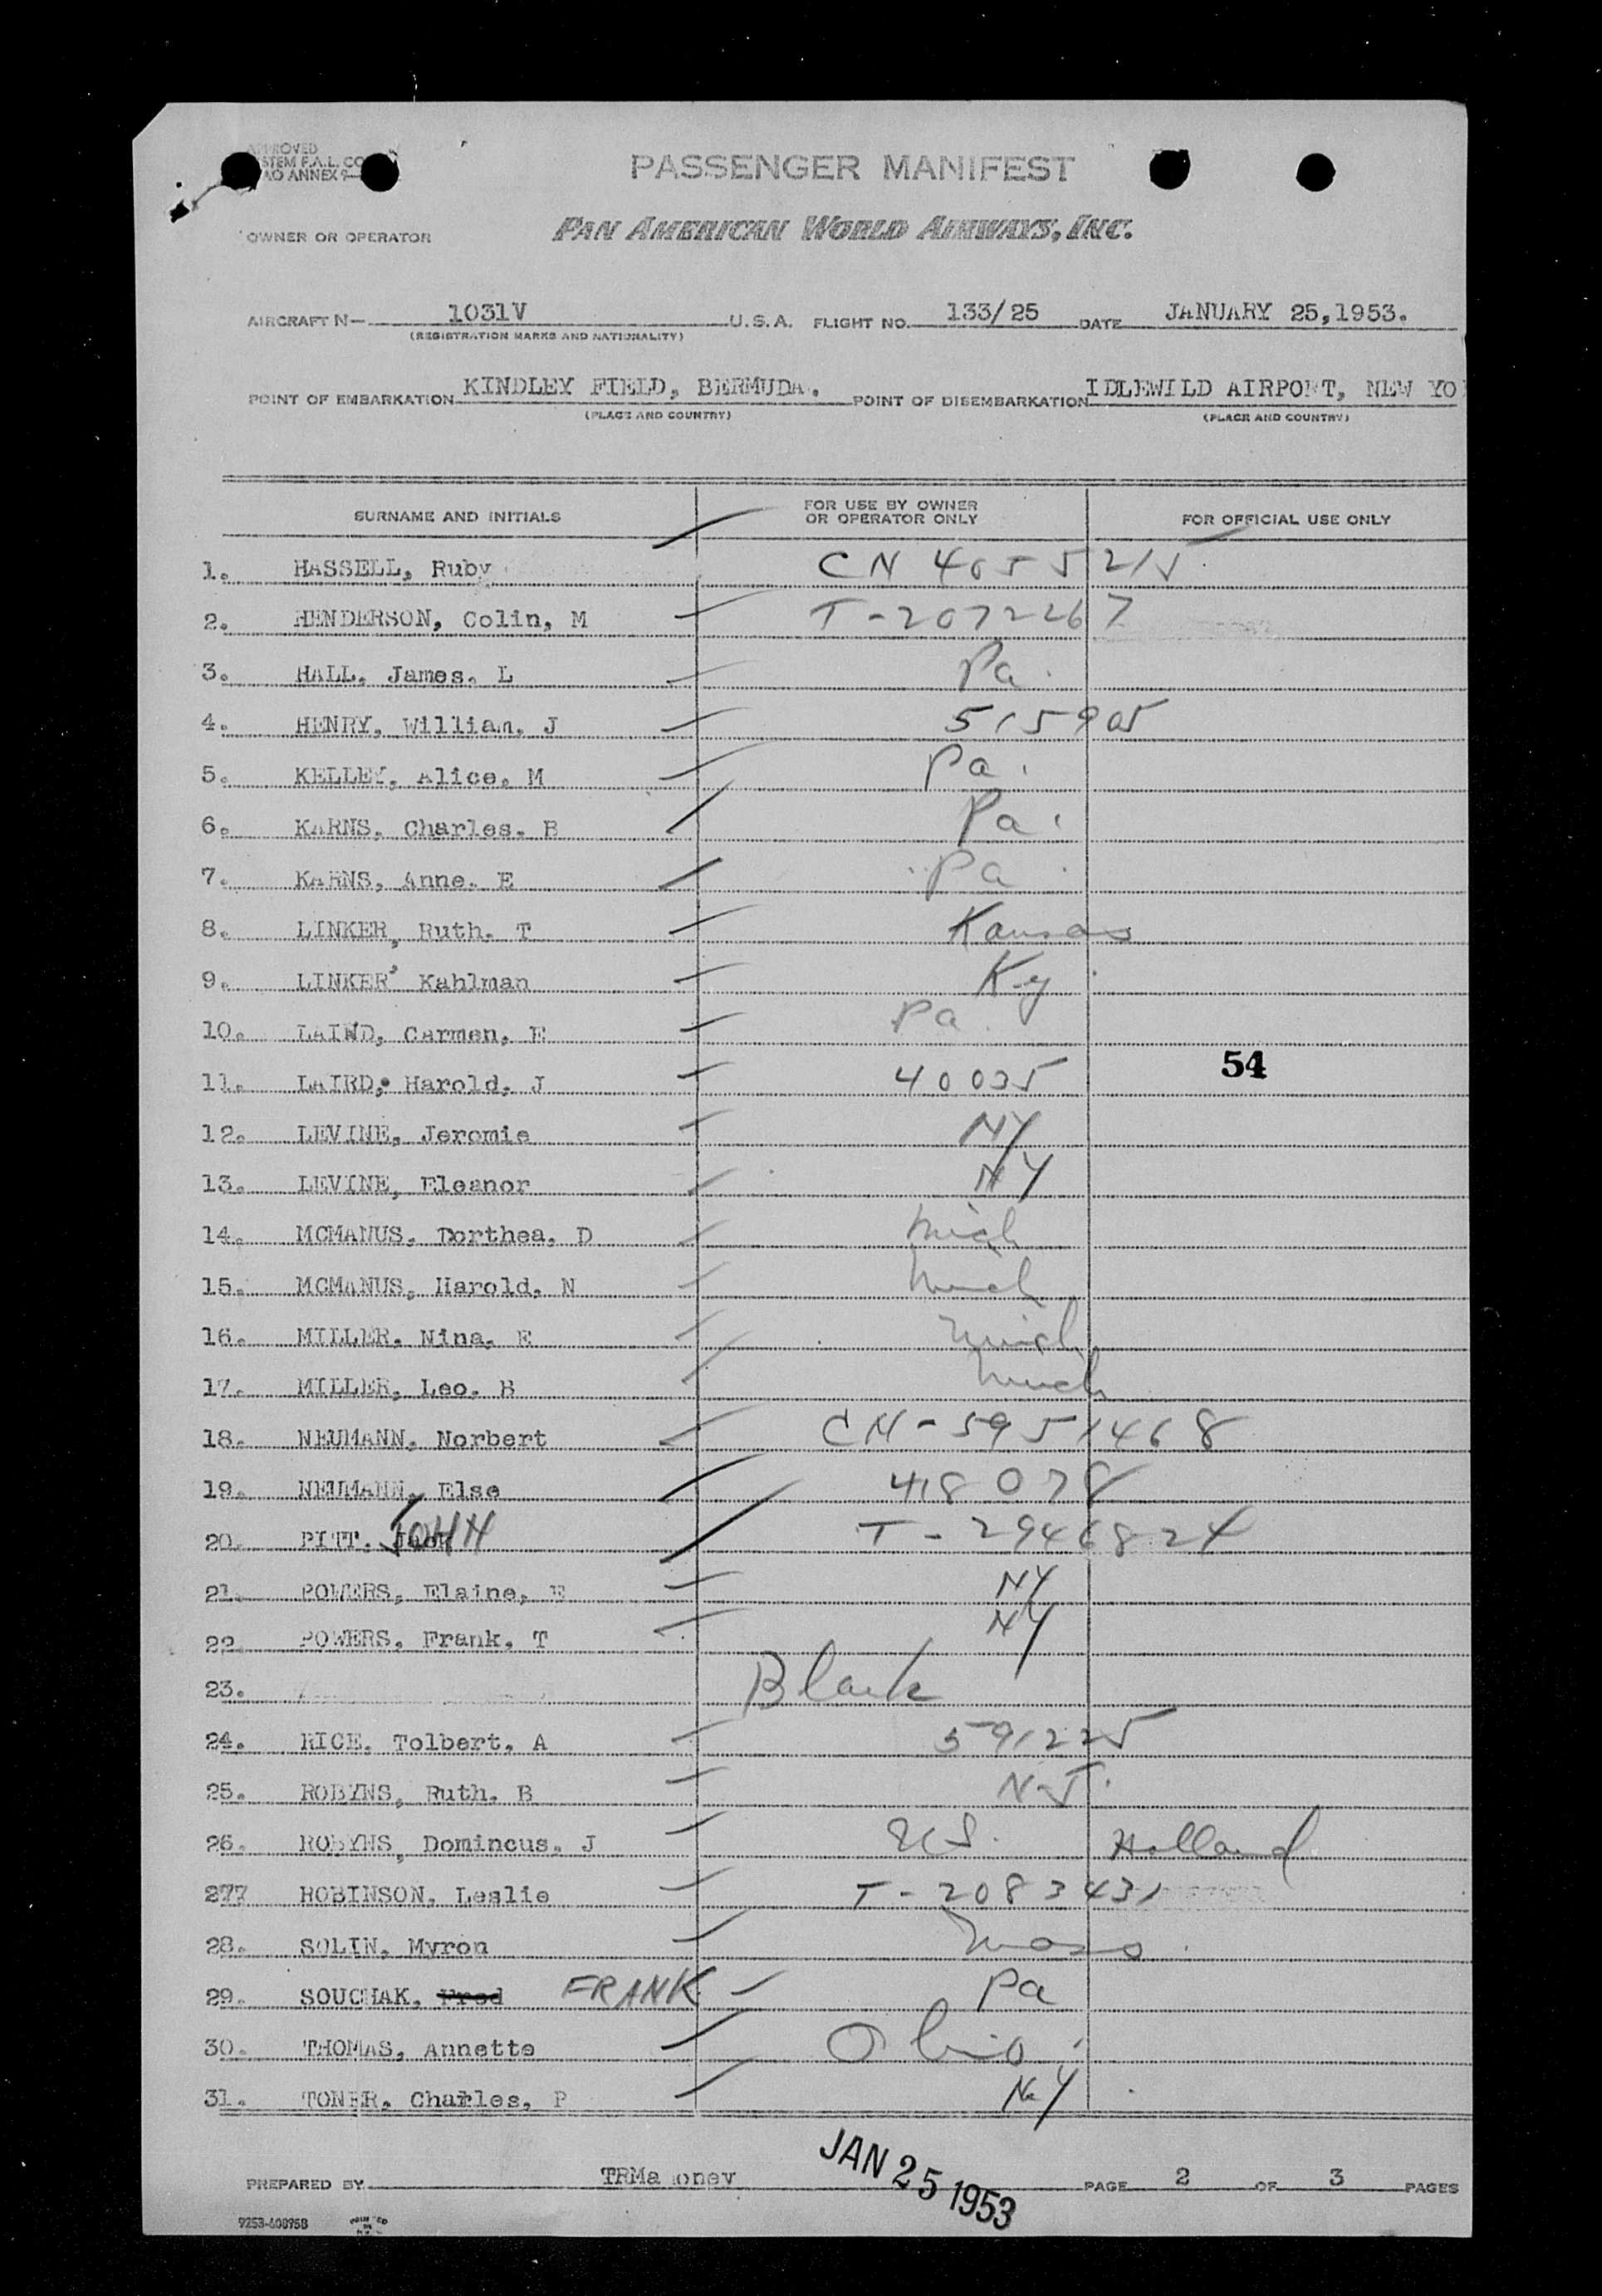 APPROVED
SYSTEM F.A.L. CO
AO ANNEX 9
PASSENGER MANIFEST
OWNER OR OPERATOR PAN AMERICAN WORLD AIRWAYS, INC.
AIRCRAFT N— 1031V U.S.A. FLIGHT NO. 133/25 DATE JANUARY 25,1953.
(REGISTRATION MARKS AND NATIONALITY)
POINT OF EMBARKATION KINDLEY FIELD, BERMUDA. POINT OF DISEMBARKATION IDLEWILD AIRPORT, NEW YO
(PLACE AND COUNTRY) (PLACE AND COUNTRY)
SURNAME AND INITIALS FOR USE BY OWNER OR OPERATOR ONLY FOR OFFICIAL USE ONLY
1. HASSELL, Ruby CN 4055215
2. HENDERSON, Colin, M T-2072267
3. HALL, James. L Pa.
4. HENRY, William, J 515905
5. KELLEY, Alice, M Pa.
6. KARNS, Charles. B Pa.
7. KARNS, Anne. E Pa
8. LINKER, Ruth. T Kansas
9. LINKER, Kahlman Ky
10. LAIRD, Carmen, E Pa
11. LAIRD, Harold, J 40035
54
12. LEVINE, Jeromie NY
13. LEVINE, Eleanor NY
14. MCMANUS, Dorthea, D Mich
15. MCMANUS, Harold, N Mich
16. MILLER, Nina, E Mich
17. MILLER, Leo. B Mich
18. NEUMANN, Norbert CN-5951468
19. NEUMANN, Else 418078
20. PITT. JOHN T-2946824
21. POWERS, Elaine, E NY
22. POWERS, Frank, T NY
23. Blank
24. RICE. Tolbert, A 591225
25. ROBYNS, Ruth. B N.J.
26. ROBYNS, Domincus, J US. Holland
277 ROBINSON, Leslie T-2083431
28. SOLIN, Myron Mass
29. SOUCHAK, Fred FRANK Pa
30. THOMAS, Annette Ohio
31. TONER, Charles, P NY
PREPARED BY TRMaloney JAN 25 1953 PAGE 2 OF 3 PAGES
9253-608958 PRINTED IN